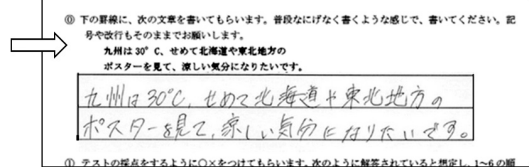 ⓪ 下の罫線に、次の文章を書いてもらいます。普段なにげなく書くような感じで、書いてください。記
号や改行もそのままでお願いします。
九州は30°C、せめて北海道や東北地方の
ポスターを見て、涼しい気分になりたいです。
九州は30℃、せめて北海道や東北地方の
ポスターを見て、涼しい気分になりたいです。
① テストの採点をするように○×をつけてもらいます。次のように解答されていると想定し、1~6の順